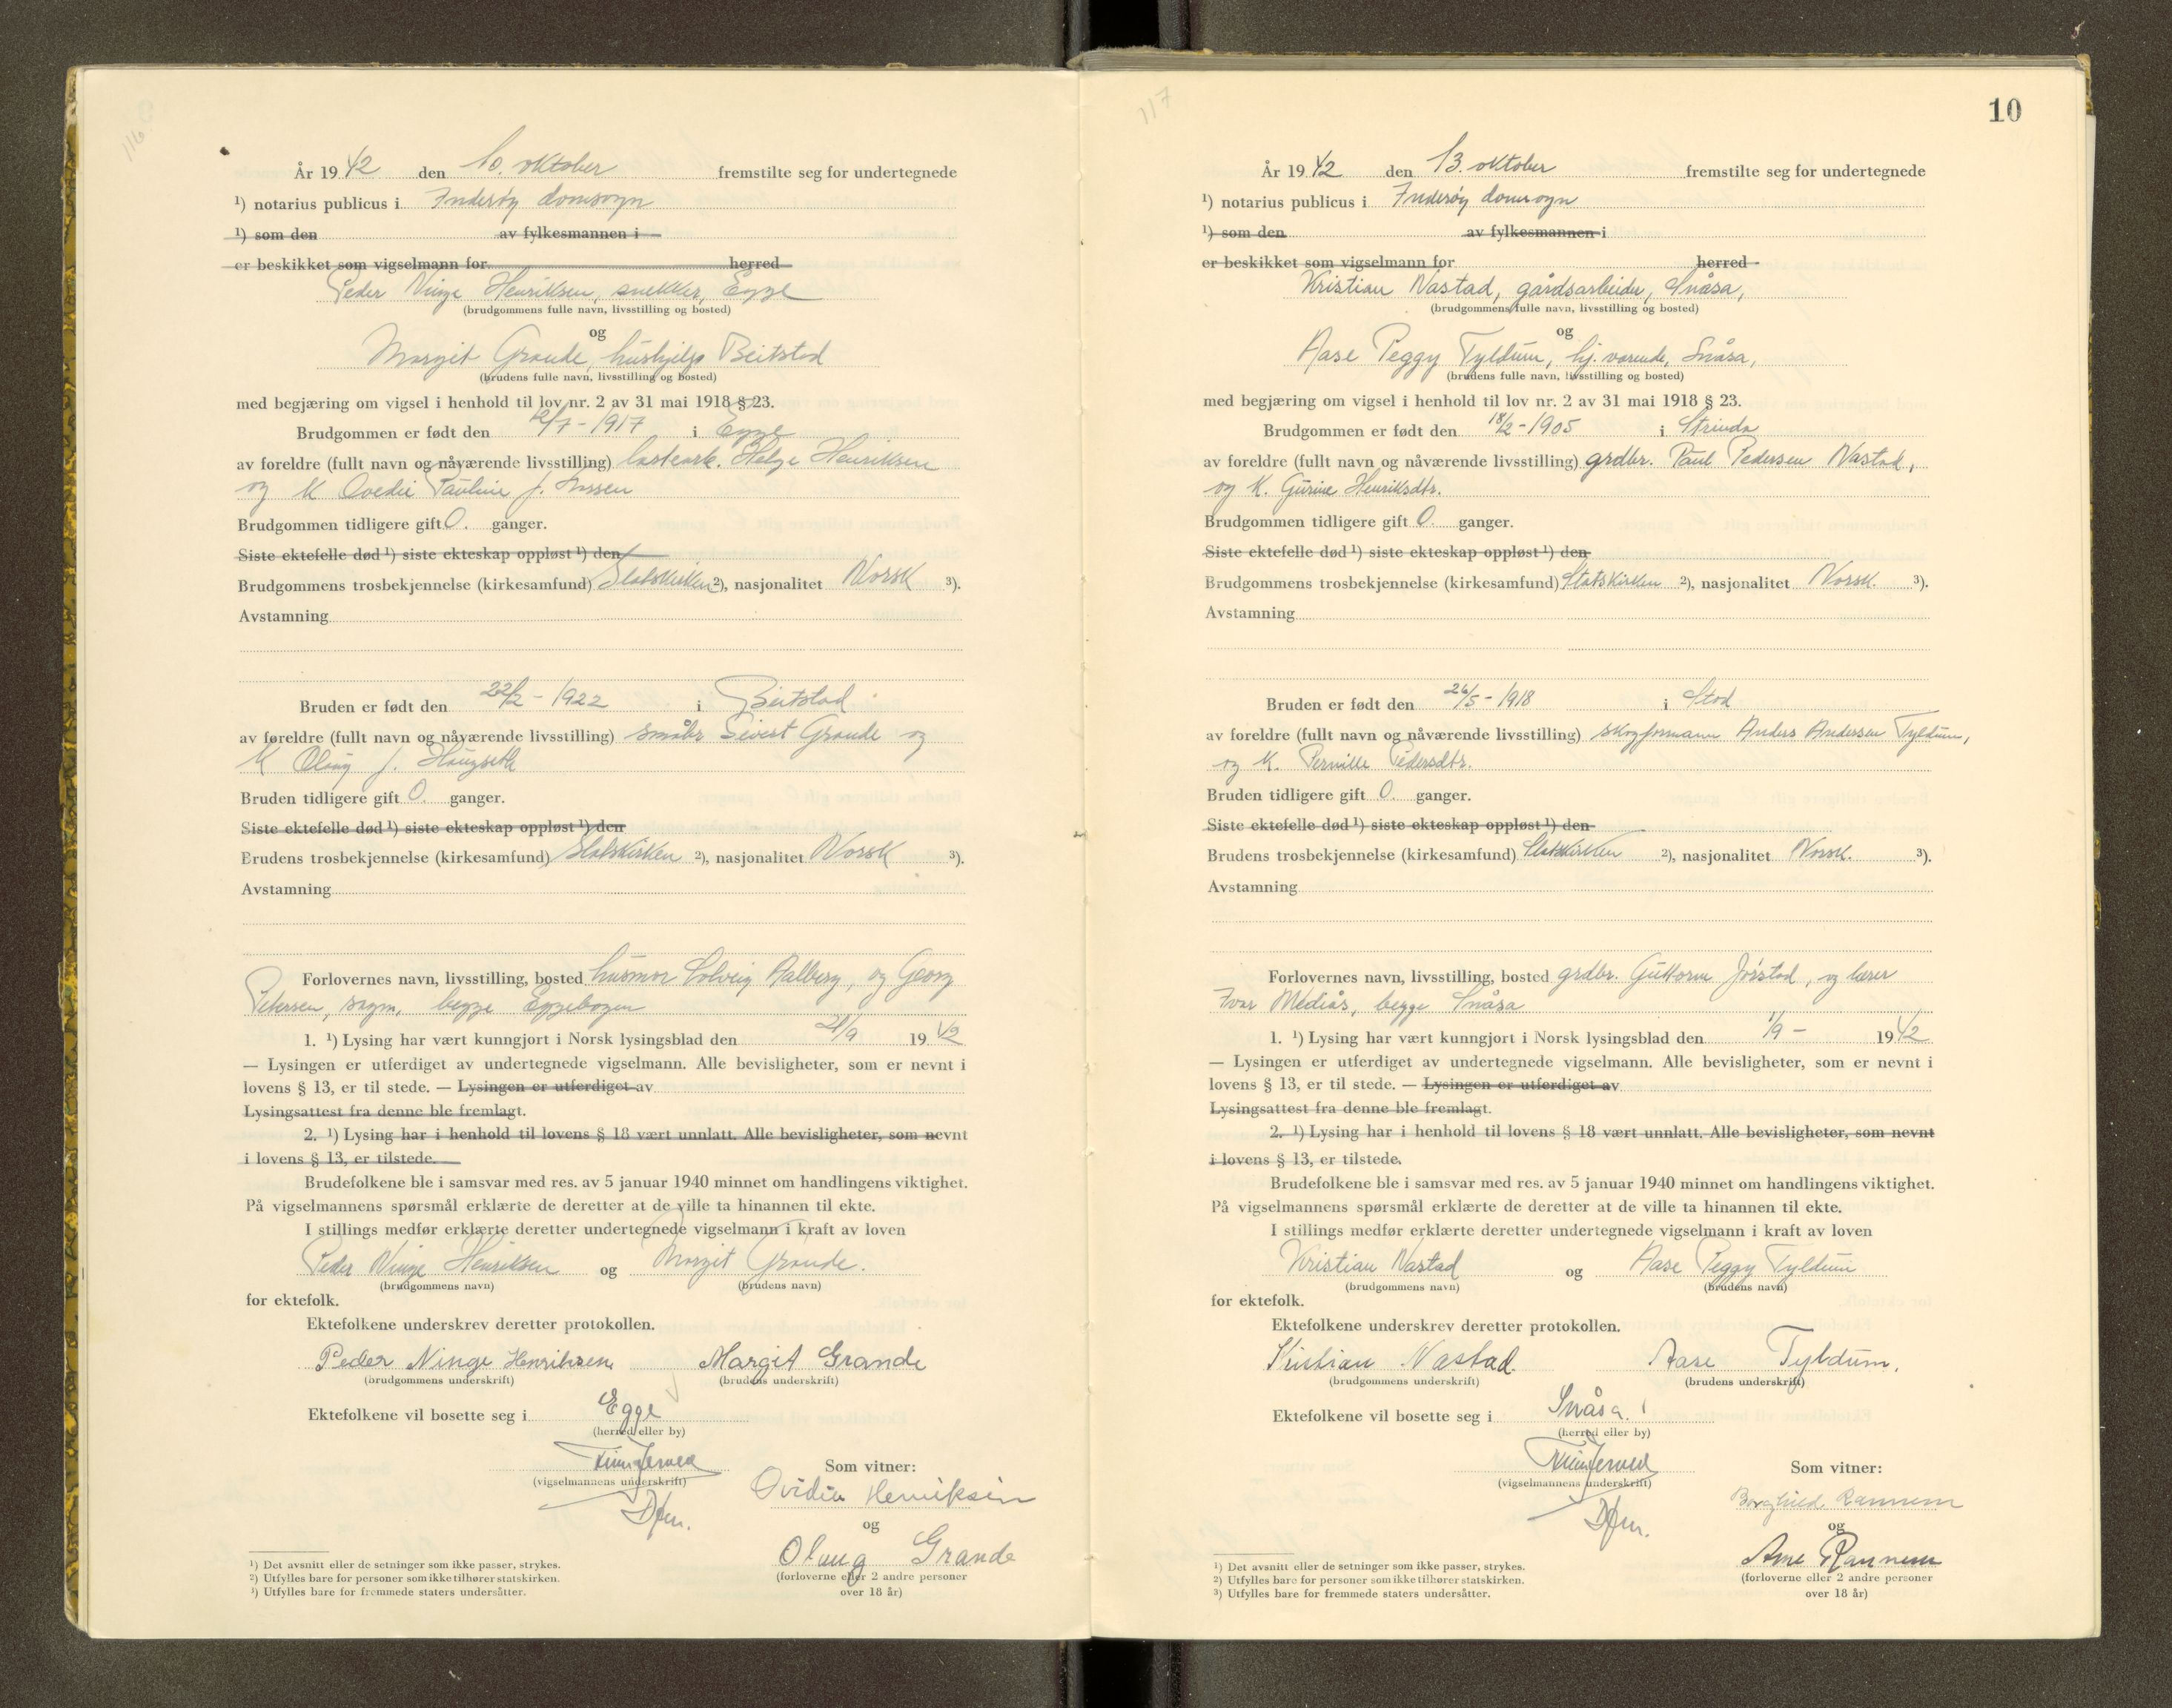 116
År 1942 den 10. oktober fremstilte seg for undertegnede
¹) notarius publicus i Inderøy domsogn
¹) som den av fylkesmannen i
er beskikket som vigselmann for herred
Peder Ninge Henriksen, snekker, Egge
(brudgommens fulle navn, livsstilling og bosted)
og
Margit Grande, hushjelp Beitstad
(brudens fulle navn, livsstilling og bosted)
med begjæring om vigsel i henhold til lov nr. 2 av 31 mai 1918 § 23.
Brudgommen er født den /7-1917 i Egge
av foreldre (fullt navn og nåværende livsstilling) Helge Henriksen
og K Pauline f.
Brudgommen tidligere gift 0. ganger.
Siste ektefelle død ¹) siste ekteskap oppløst ¹) den
Brudgommens trosbekjennelse (kirkesamfund) Statskirken ²), nasjonalitet Norsk ³).
Avstamning
Bruden er født den 22/2-1922 i Beitstad
av foreldre (fullt navn og nåværende livsstilling) småbr Sivert Grande og
K Olaug f. Haugseth
Bruden tidligere gift 0. ganger.
Siste ektefelle død ¹) siste ekteskap oppløst ¹) den
Brudens trosbekjennelse (kirkesamfund) Statskirken ²), nasjonalitet Norsk ³).
Avstamning
Forlovernes navn, livsstilling, bosted husmor Solveig Aalberg, og Georg
Petersen, sagm, begge Eggebogen
1. ¹) Lysing har vært kunngjort i Norsk lysingsblad den 21/9 1942
— Lysingen er utferdiget av undertegnede vigselmann. Alle bevisligheter, som er nevnt i
lovens § 13, er til stede. — Lysingen er utferdiget av
Lysingsattest fra denne ble fremlagt.
2. ¹) Lysing har i henhold til lovens § 18 vært unnlatt. Alle bevisligheter, som nevnt
i lovens § 13, er tilstede.
Brudefolkene ble i samsvar med res. av 5 januar 1940 minnet om handlingens viktighet.
På vigselmannens spørsmål erklærte de deretter at de ville ta hinannen til ekte.
I stillings medfør erklærte deretter undertegnede vigselmann i kraft av loven
Peder Ninge Henriksen og Margit Grande.
(brudgommens navn) (brudens navn)
for ektefolk.
Ektefolkene underskrev deretter protokollen.
Peder Ninge Henriksen Margit Grande
(brudgommens underskrift) (brudens underskrift)
Ektefolkene vil bosette seg i Egge
(herred eller by)
Som vitner:
(vigselmannens underskrift)
Ovidie Henriksen
Dfm.
og
Olaug Grande
(forloverne eller 2 andre personer
over 18 år)
¹) Det avsnitt eller de setninger som ikke passer, strykes.
²) Utfylles bare for personer som ikke tilhører statskirken.
³) Utfylles bare for fremmede staters undersåtter.
117
10
År 1942 den 13. oktober fremstilte seg for undertegnede
¹) notarius publicus i Inderøy domsogn
¹) som den av fylkesmannen i
er beskikket som vigselmann for herred
Kristian Nastad, gårdsarbeider, Snåsa,
(brudgommens fulle navn, livsstilling og bosted)
og
Aase Peggy Tyldum, hj. værende, Snåsa,
(brudens fulle navn, livsstilling og bosted)
med begjæring om vigsel i henhold til lov nr. 2 av 31 mai 1918 § 23.
Brudgommen er født den 18/2-1905 i Strinda
av foreldre (fullt navn og nåværende livsstilling) grdbr. Paul Pedersen Nastad,
og K. Gurine Henriksdtr.
Brudgommen tidligere gift 0. ganger.
Siste ektefelle død ¹) siste ekteskap oppløst ¹) den
Brudgommens trosbekjennelse (kirkesamfund) Statskirken ²), nasjonalitet Norsk. ³).
Avstamning
Bruden er født den 26/5-1918 i Stod
av foreldre (fullt navn og nåværende livsstilling) skogformann Anders Andersen Tyldum,
og K. Pernille Pedersdtr.
Bruden tidligere gift 0. ganger.
Siste ektefelle død ¹) siste ekteskap oppløst ¹) den
Brudens trosbekjennelse (kirkesamfund) Statskirken ²), nasjonalitet Norsk. ³).
Avstamning
Forlovernes navn, livsstilling, bosted grdbr. Guttorm Jørstad, og lærer
Ivar Mediås, begge Snåsa
1. ¹) Lysing har vært kunngjort i Norsk lysingsblad den 1/9 - 1942
— Lysingen er utferdiget av undertegnede vigselmann. Alle bevisligheter, som er nevnt i
lovens § 13, er til stede. — Lysingen er utferdiget av
Lysingsattest fra denne ble fremlagt.
2. ¹) Lysing har i henhold til lovens § 18 vært unnlatt. Alle bevisligheter, som nevnt
i lovens § 13, er tilstede.
Brudefolkene ble i samsvar med res. av 5 januar 1940 minnet om handlingens viktighet.
På vigselmannens spørsmål erklærte de deretter at de ville ta hinannen til ekte.
I stillings medfør erklærte deretter undertegnede vigselmann i kraft av loven
Kristian Nastad og Aase Peggy Tyldum
(brudgommens navn) (brudens navn)
for ektefolk.
Ektefolkene underskrev deretter protokollen.
Kristian Nastad. Aase Tyldum.
(brudgommens underskrift) (brudens underskrift)
Ektefolkene vil bosette seg i Snåsa.
(herred eller by)
Som vitner:
(vigselmannens underskrift)
Borghild Rannem
Dfm.
og
Arne Rannem
(forloverne eller 2 andre personer
over 18 år)
¹) Det avsnitt eller de setninger som ikke passer, strykes.
²) Utfylles bare for personer som ikke tilhører statskirken.
³) Utfylles bare for fremmede staters undersåtter.